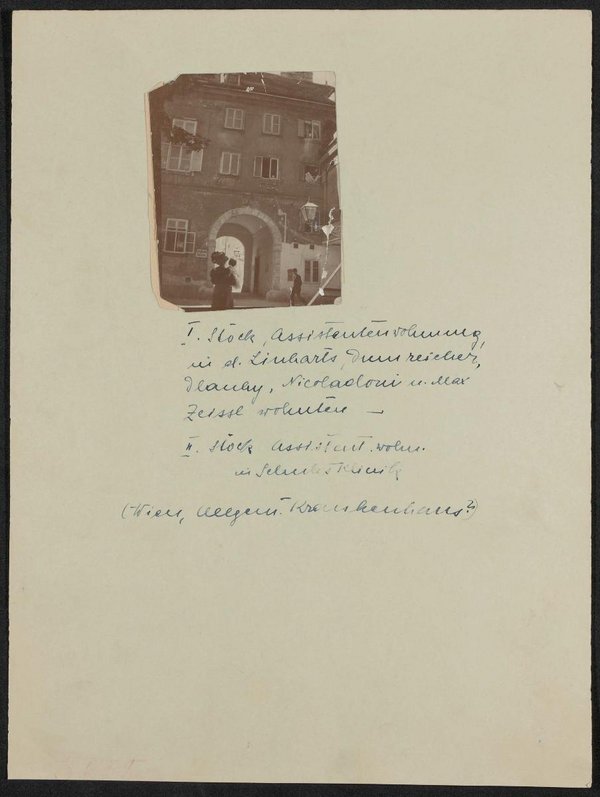 I. Stock, Assistentenwohnung,
in d. Linharts, Dumreicher,
Dlauhy, Nicoladoni u. Max
Zeissl wohnten —
II. Stock Assistent. wohn.
Klinik
(Wien, Allgem. Krankenhaus?)